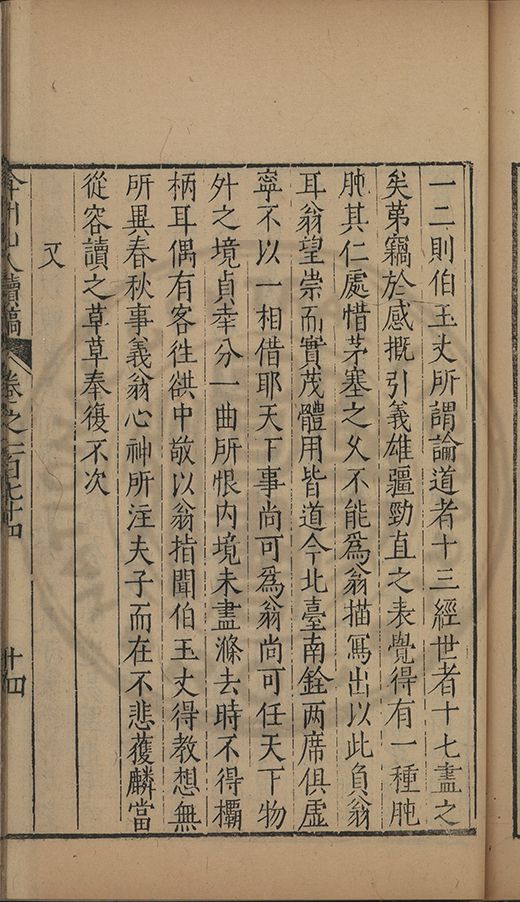 一二則伯玉丈所謂論道者十三經世者十七盡之
矣第竊於感概引義雄疆勁直之表覺得有一種肫
肫其仁處惜茅塞之父不能爲翁描寫出以此負翁
耳翁望崇而實茂體用皆道今北臺南銓两席俱虛
寧不以一相借耶天下事尚可爲翁尚可任天下物
外之境貞幸分一曲所恨内境未盡滌去時不得欛
柄耳偶有客徃㳟中敬以翁指聞伯玉丈得教想無
所異春秋事義翁心神所注夫子而在不悲蒦麟當
從容讀之草草奉復不次
又
弇州山人續稿
卷之一百七十四
十四